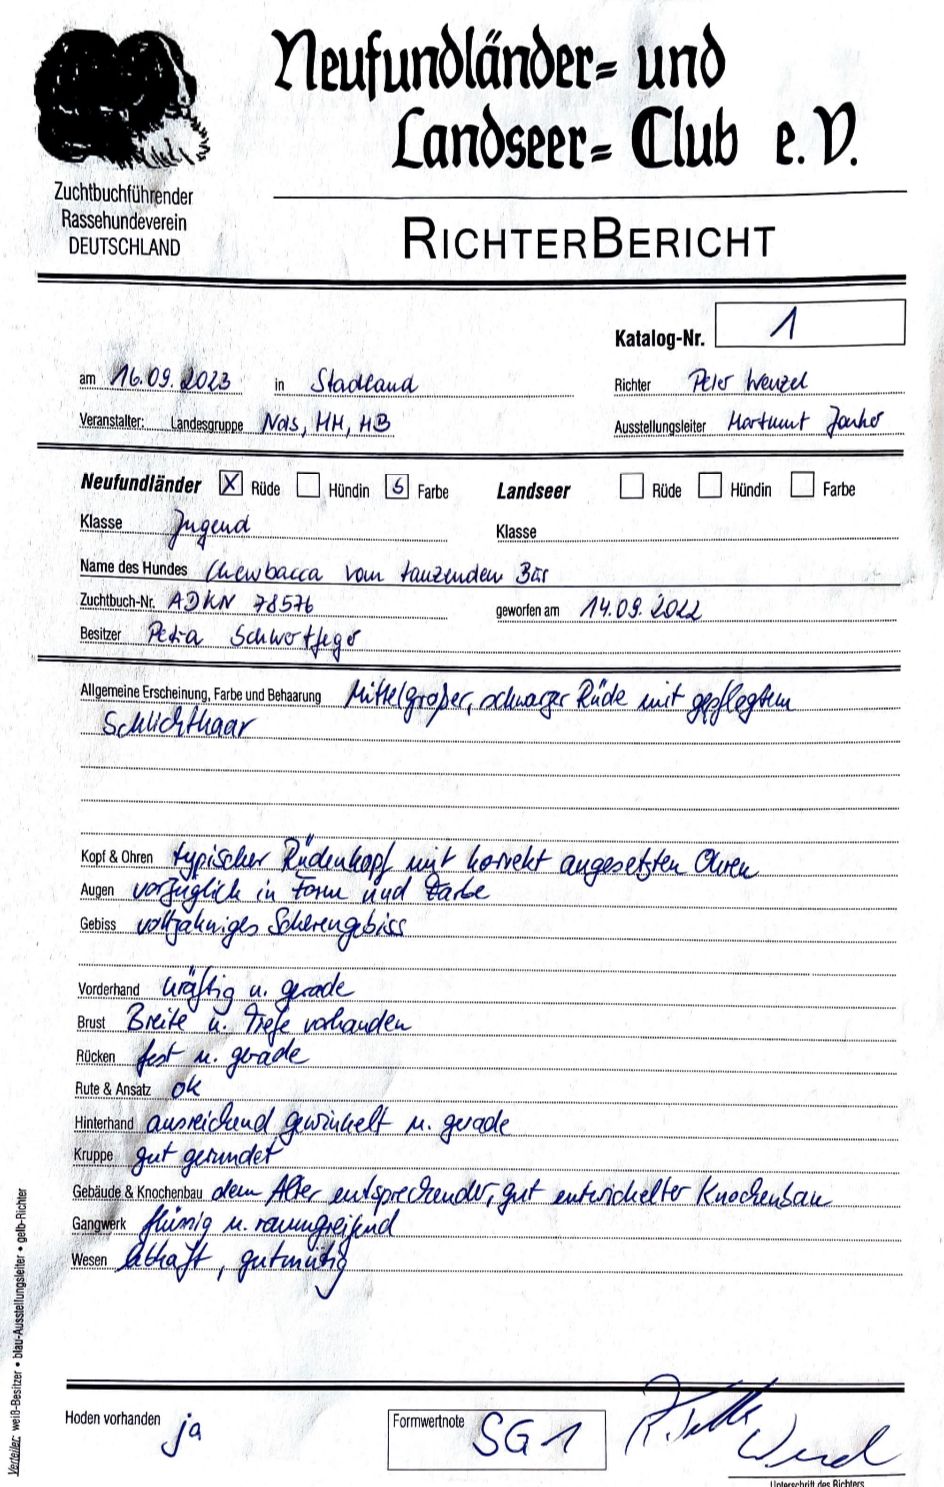 Neufundländer= und
Landseer= Club e.V.
Zuchtbuchführender
Rassehundeverein
DEUTSCHLAND
RICHTERBERICHT
Katalog-Nr. 1
am 16.09.2023 in Stadland Richter Peter Wenzel
Veranstalter: Landesgruppe Nds, HH, HB Ausstellungsleiter Hartmut
Neufundländer X Rüde Hündin S Farbe Landseer Rüde Hündin Farbe
Klasse Jugend Klasse
Name des Hundes Chewbacca vom tanzenden Bär
Zuchtbuch-Nr. ADKN 78576 geworfen am 14.09.2022
Besitzer Petra Schwertfeger
Allgemeine Erscheinung, Farbe und Behaarung Mittelgroßer, schwarzer Rüde mit gepflegtem
Schlichthaar
Kopf & Ohren typischer Rüdenkopf mit korrekt angesetzten Ohren
Augen vorzüglich in Form und Farbe
Gebiss vollzahniges Scherengebiss
Vorderhand kräftig u. gerade
Brust Breite u. Tiefe vorhanden
Rücken fest u. gerade
Rute & Ansatz ok
Hinterhand ausreichend gewinkelt u. gerade
Kruppe gut gerundet
Gebäude & Knochenbau dem Alter entsprechender, gut entwickelter Knochenbau
Gangwerk flüssig u. raumgreifend
Wesen lebhaft, gutmütig
Hoden vorhanden ja Formwertnote SG 1
Unterschrift des Richters
Verteiler: weiß-Besitzer • blau-Ausstellungsleiter • gelb-Richter